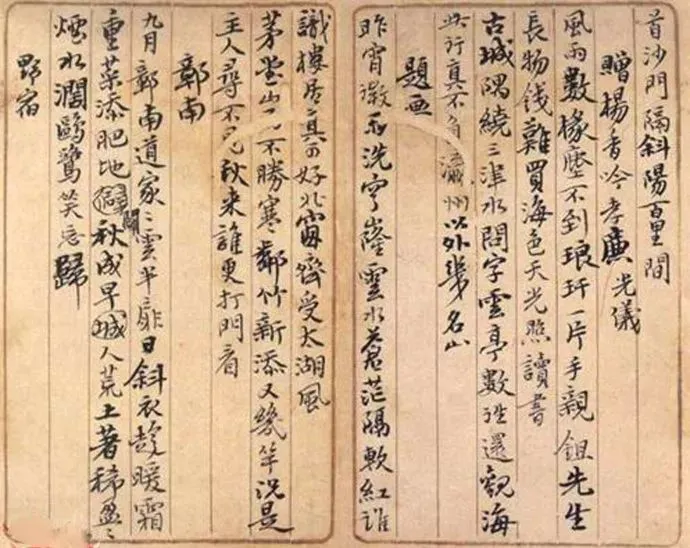 首沙門隔斜陽百里間
贈楊香吟孝廉光儀
風雨數椽塵不到琅玕一片手親鉏先生
長物錢難買海色天光照讀書
古城隅繞三津水問字雲亭數往還觀海
此行真不負瀛州以外幾名山
題画
昨宵微雨洗穹窿雲水蒼茫隔軟紅誰
識樓居真可好北窗齊受太湖風
茅堂山不勝寒鄰竹新添又幾竿況是
主人尋不見秋來誰更打門看
鄣南
九月鄣南道家家雲半扉日斜衣趁暖霜
重菜添肥地僻秋成早人荒土著稀盈盈
煙水闊鷗鷺笑忘歸
野宿